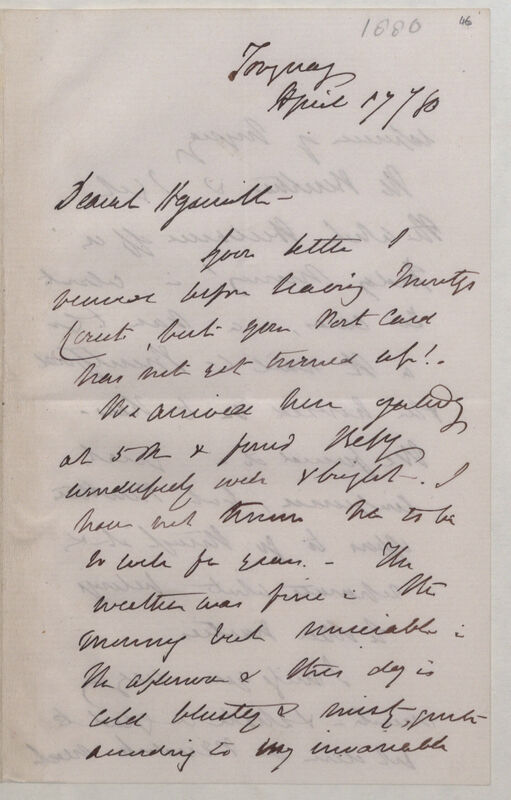 1880
46
Torquay
April 17/80
Dearest Hyacinth -
Your letter I
received before leaving Thurstgs
Court, but your Post Card
has not yet turned up! -
We arrived here yesterday
at 5 PM & found Betsy
wonderfully well & bright. I
have not known her to be
so well for years. - The
weather was fine in the
morning but miserable in
the afternoon & this day is
cold blustery & misty, quite
according to my invariable